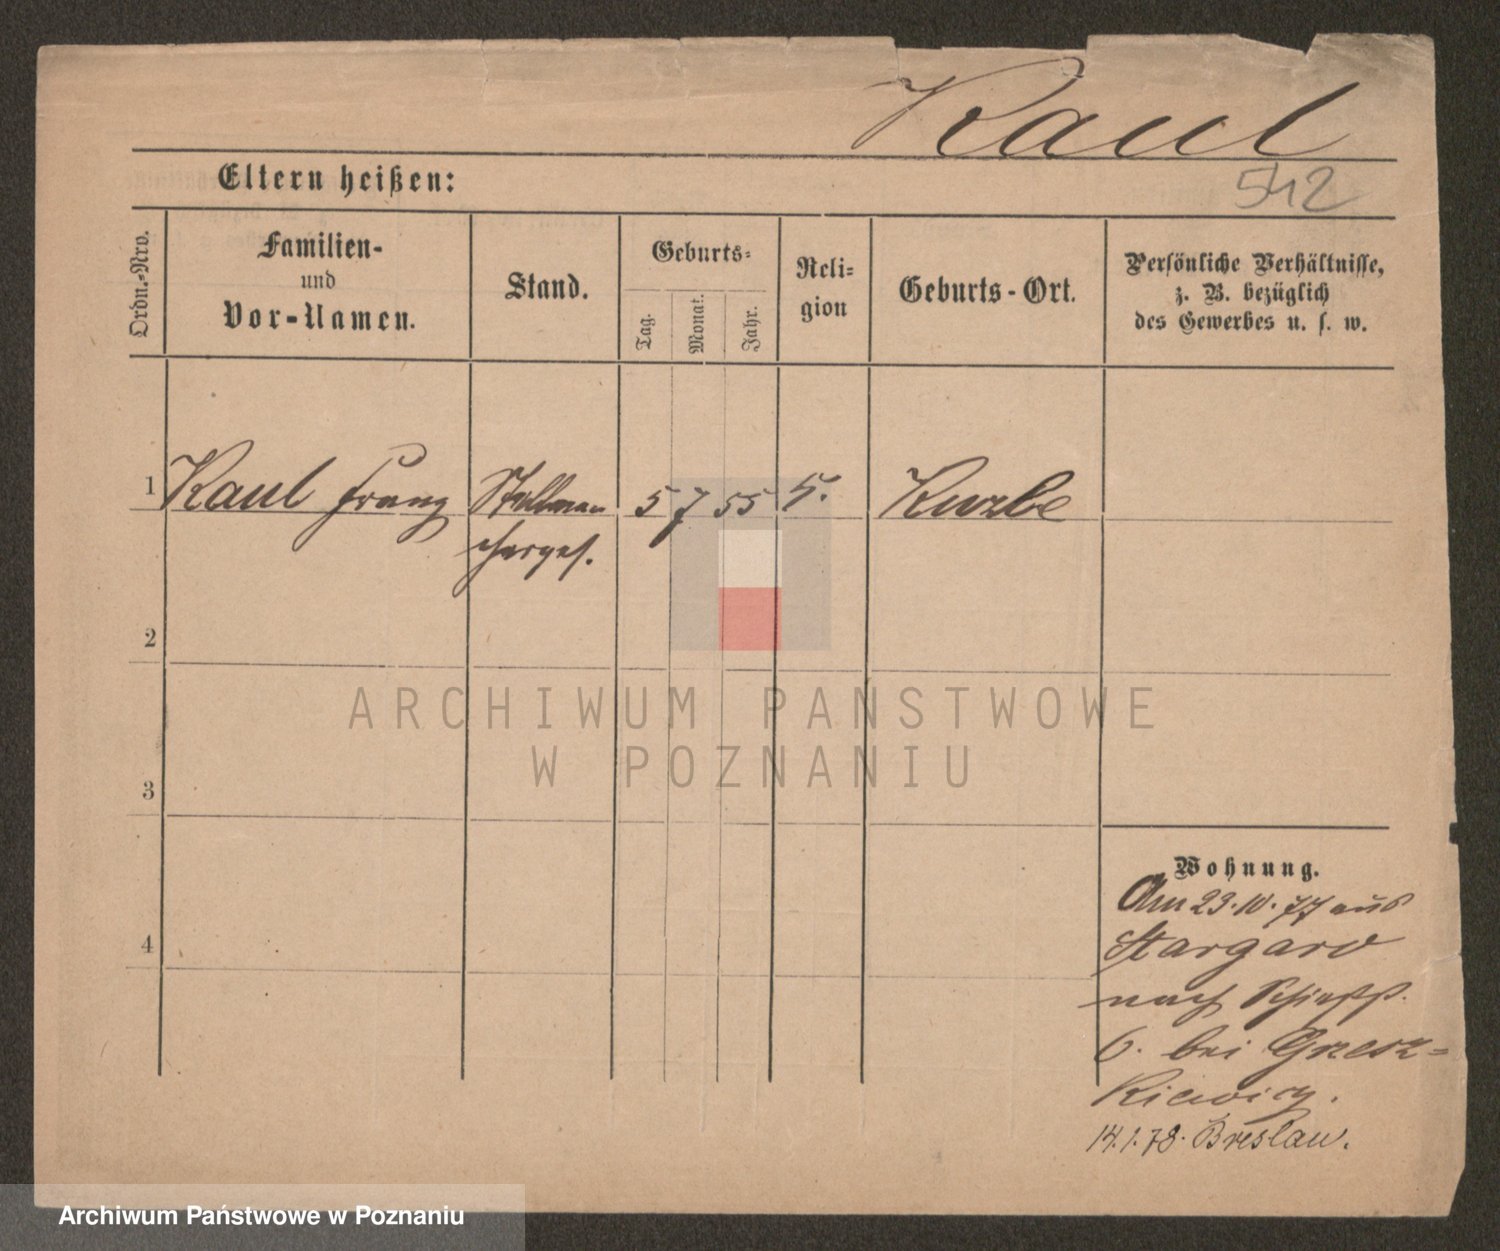 Kaul
Eltern heißen:
542
Ordn.-Nro.
Familien-
und
Vor-Namen.
Stand.
Geburts-
Tag.
Monat.
Jahr.
Reli-
gion
Geburts-Ort.
Persönliche Verhältnisse,
z. B. bezüglich
des Gewerbes u. s. w.
1 Kaul Franz 5 7 55 Kurzbe
2
3
4
Wohnung.
Am 23.10.77 aus
Stargard
nach
6. bei Grzesz-
kiewicz.
14.1.78. Breslau.
ARCHIWUM PAŃSTWOWE
W POZNANIU
Archiwum Państwowe w Poznaniu